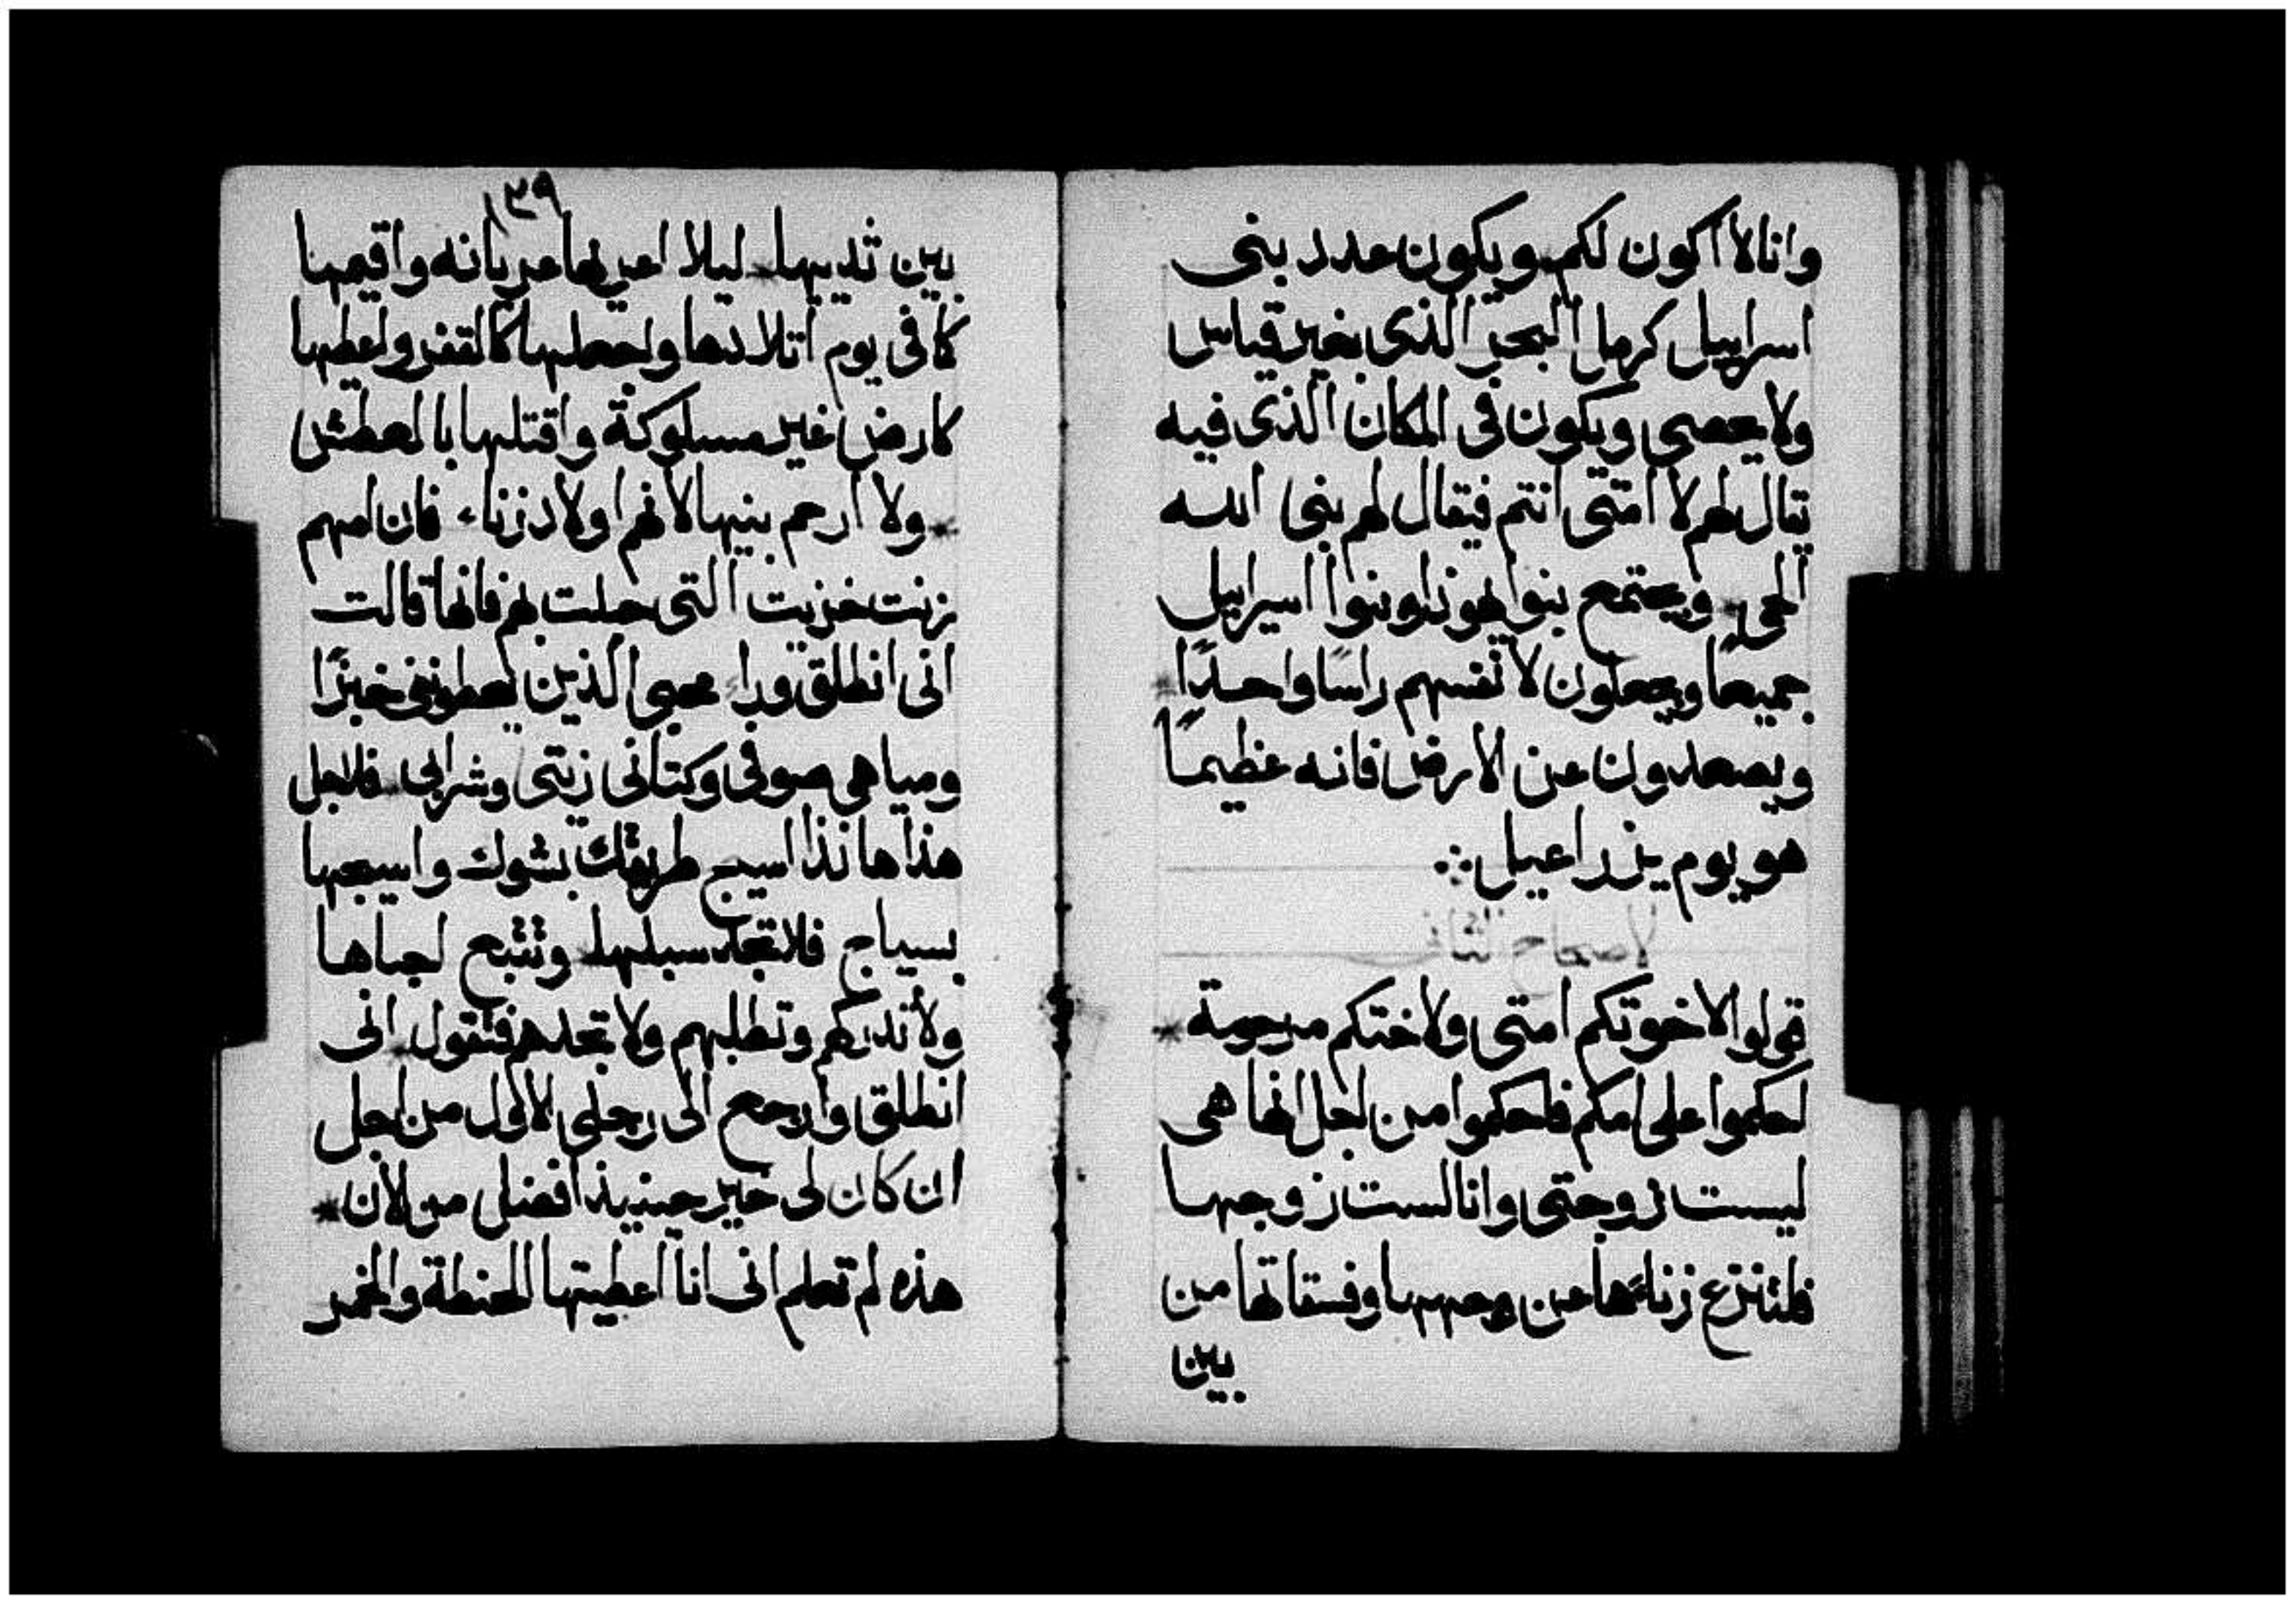 وانا لا اكون لكم ويكون عدد بنى
اسراييل كرمل البحر الذى بغير قياس
ولا يحصى ويكون فى المكان الذى فيه
يقال لهم لا امتى انتم فيقال لهم بنى الله
الحى * ويجتمع بنوا يهوذا وبنوا اسراييل
جميعًا ويجعلون لانفسهم راسًا واحدًا *
ويصعدون عن الارض فانه عظيمًا
هو يوم يزراعيل ∴
الاصحاح الثانى
قولوا لاخوتكم امتى ولاختكم مرحومة *
احكموا على امكم فاحكموا من اجل انها هى
ليست زوجتى وانا لست زوجها
فلتنزع زناءها عن وجهها وفسقاتها من
بين
١٣٩
بين ثدييها * ليلا اعريها عريانه واقيمها
كا فى يوم اتلادها واجعلها كالقفر واعطيها
كارض غير مسلوكة واقتلها بالعطش
* ولا ارحم بنيها لانهم اولاد زناء فان امهم
زنت خزيت التى حبلت بهم فانها قالت
انى انطلق وراء محبى الذين يعطونى خبزًا
ومياهى صوفى وكتانى زيتى وشرابى * فلاجل
هذا هانذا اسيج طريقك بشوك واسيجها
بسياج فلا تجد سبلها * وتتبع احباها
ولا تدركهم وتطلبهم ولا تجدهم فتقول * انى
انطلق وارجع الى رجلى الاول من اجل
ان كان لى خير حينيذ افضل من الان *
هذه لم تعلم انى انا اعطيتها الحنطة والخمر